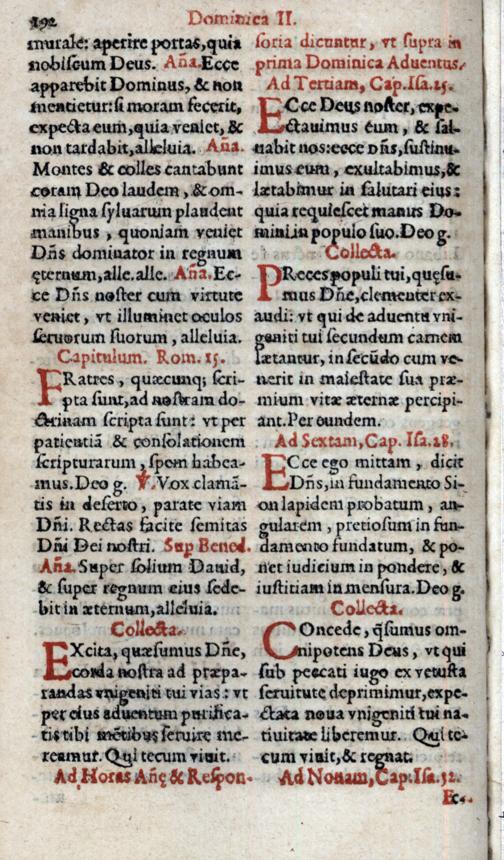 292 Dominica II.
murale: aperire portas, quia
nobiſcum Deus. Aña. Ecce
apparebit Dominus, & non
mentietur: ſi moram fecerit,
expecta eum, quia veniet, &
non tardabit, alleluia. Aña.
Montes & colles cantabunt
coram Deo laudem, & om-
nia ligna ſyluarum plaudent
manibus, quoniam veniet
Dñs dominator in regnum
ęternum, alle. alle. Aña. Ec-
ce Dñs noſter cum virtute
veniet, vt illuminet oculos
ſeruorum ſuorum, alleluia.
Capitulum. Rom. 15.
FRatres, quæcunq; ſcri-
pta ſunt, ad noſtram do-
ctrinam ſcripta ſunt: vt per
patientiã & conſolationem
ſcripturarum, ſpem habea-
mus. Deo g. ℣. Vox clamã-
tis in deſerto, parate viam
Dñi. Rectas facite ſemitas
Dñi Dei noſtri. Sup Bened.
Aña. Super ſolium Dauid,
& ſuper regnum eius ſede-
bit in æternum, alleluia.
Collecta.
EXcita, quæſumus Dñe,
corda noſtra ad præpa-
randas vnigeniti tui vias: vt
per eius aduentum purifica-
tis tibi mẽtibus ſeruire me-
reamur. Qui tecum viuit.
Ad Horas Añę & Reſpon-
ſoria dicuntur, vt ſupra in
prima Dominica Aduentus.
Ad Tertiam, Cap. Iſa. 25.
ECce Deus noſter, expe-
ctauimus eum, & ſal-
uabit nos: ecce Dñs, ſuſtinu-
imus eum, exultabimus, &
lætabimur in ſalutari eius:
quia requieſcet manus Do-
mini in populo ſuo. Deo g.
Collecta.
PReces populi tui, quęſu-
mus Dñe, clementer ex-
audi: vt qui de aduentu vni-
geniti tui ſecundum carnem
lætantur, in ſecũdo cum ve-
nerit in maieſtate ſua præ-
mium vitæ æternæ percipi-
ant. Per eundem.
Ad Sextam, Cap. Iſa. 28.
ECce ego mittam, dicit
Dñs, in fundamento Si-
on lapidem probatum, an-
gularem, pretioſum in fun-
damento fundatum, & po-
net iudicium in pondere, &
iuſtitiam in menſura. Deo g.
Collecta.
COncede, q̃ſumus om-
nipotens Deus, vt qui
ſub peccati iugo ex vetuſta
ſeruitute deprimimur, expe-
ctata noua vnigeniti tui na-
tiuitate liberemur. Qui te-
cum viuit, & regnat.
Ad Nonam, Cap. Iſa. 52.
Ec-